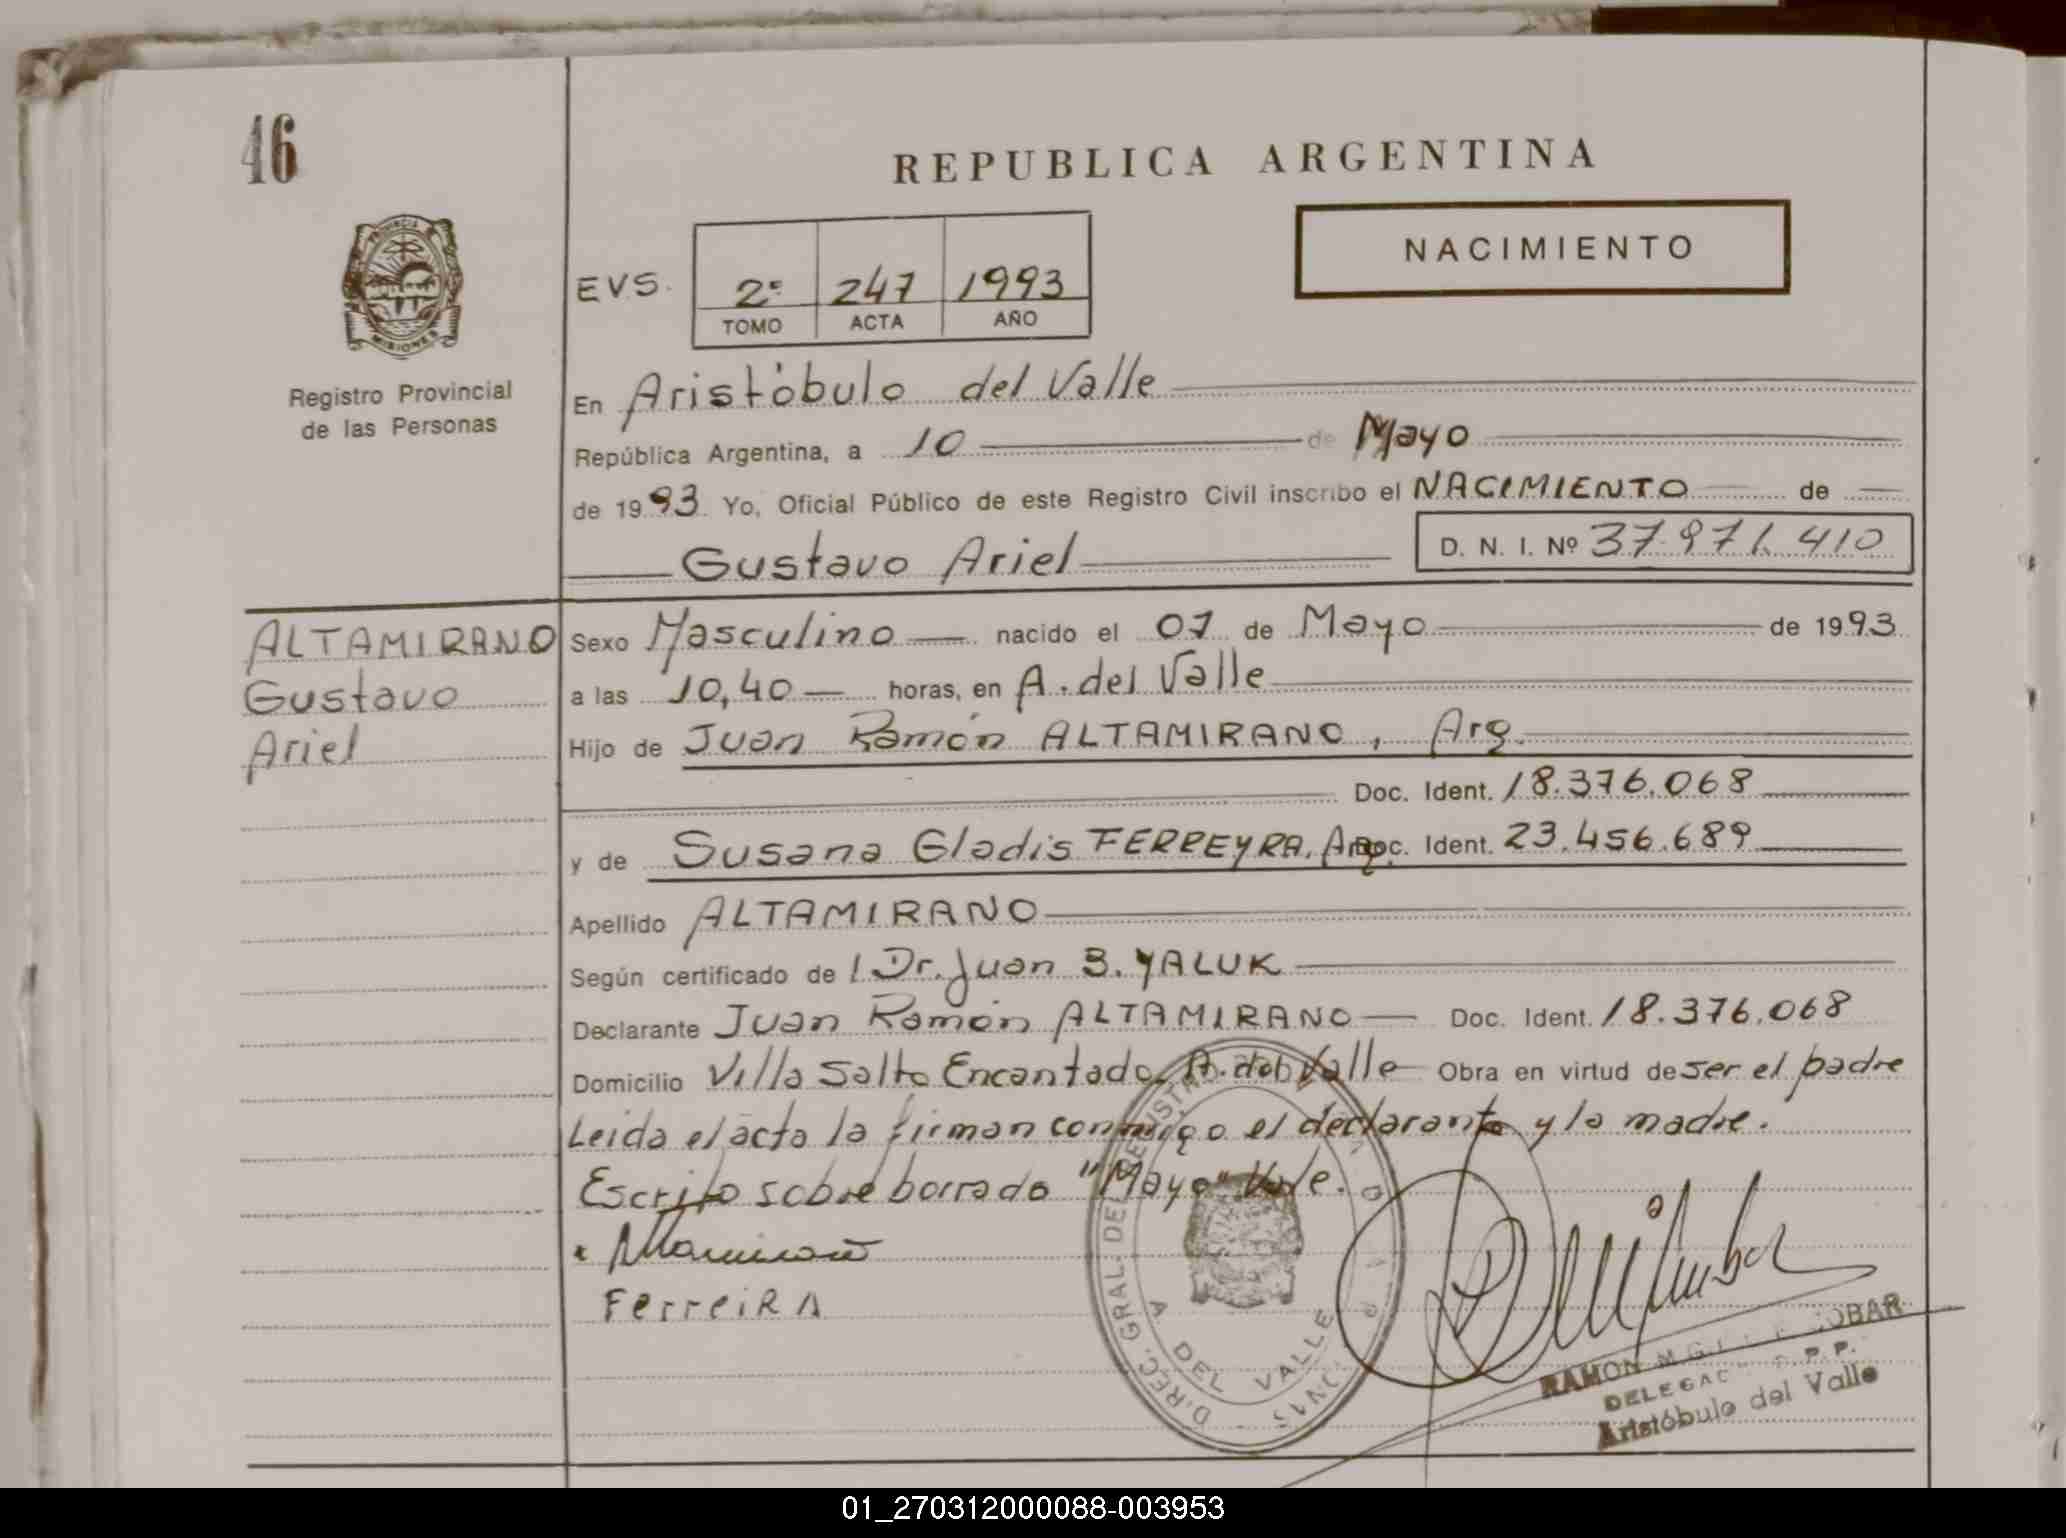 46
REPUBLICA ARGENTINA
PROVINCIA
MISIONES
Registro Provincial
de las Personas
NACIMIENTO
EVS. 2º 247 1993
TOMO ACTA AÑO
En Aristóbulo del Valle
República Argentina, a 10 de Mayo
de 1993 Yo, Oficial Público de este Registro Civil inscribo el NACIMIENTO de
Gustavo Ariel D. N. I. Nº 37.971.410
ALTAMIRANO
Gustavo
Ariel
Sexo Masculino nacido el 07 de Mayo de 1993
a las 10,40 horas, en A. del Valle
Hijo de Juan Ramón ALTAMIRANO, Arg.
Doc. Ident. 18.376.068
y de Susana Gladis FERREYRA, Arg. Doc. Ident. 23.456.689
Apellido ALTAMIRANO
Según certificado de l Dr. Juan B. YALUK
Declarante Juan Ramón ALTAMIRANO Doc. Ident. 18.376.068
Domicilio Villa Salto Encantado, A. del Valle Obra en virtud de ser el padre
Leida el acta la firman conmigo el declarante y la madre.
Escrito sobre borrado "Mayo" Vale.
FerreiRA
DIREC. GRAL. DEL REGISTRO
A DEL VALLE
RAMON
DELEGAC R.P.P.
Aristóbulo del Valle
01_270312000088-003953